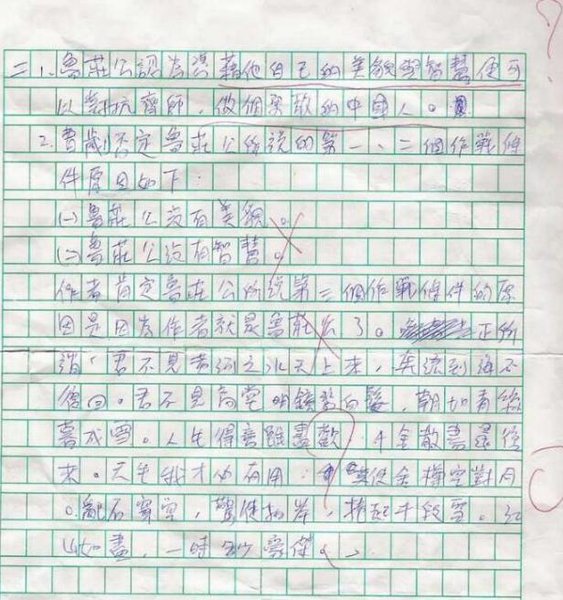 二 1. 魯莊公認為憑藉他自己的美貌與智慧便可
以對抗齊師,做個勇敢的中國人。
2. 曹劌否定魯莊公所說的第一、二個作戰條
件原因如下:
(一)魯莊公沒有美貌。
(二)魯莊公沒有智慧。
作者肯定魯莊公所說第三個作戰條件的原
因是因為作者就是魯莊公了。正所
謂「君不見黃河之水天上來,奔流到海不
復回。君不見高堂明鏡悲白髮,朝如青絲
暮成雪。人生得意須盡歡,千金散盡還復
來。天生我才必有用:莫使金樽空對月
。亂石穿空,驚濤拍岸,捲起千段雪。江
山如畫,一時多少豪傑。」